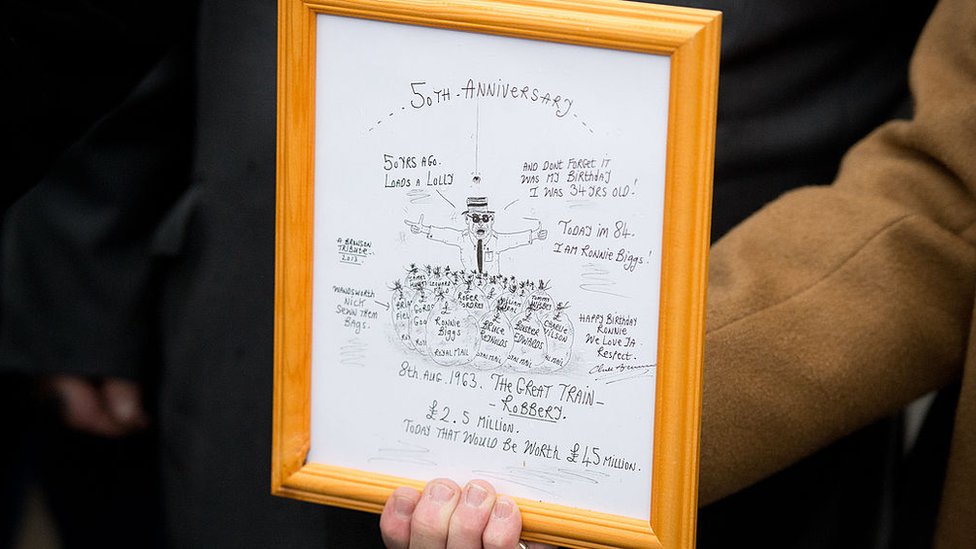 50TH ANNIVERSARY
50 YRS AGO.
LOADS A LOLLY
AND DONT FORGET IT
WAS MY BIRTHDAY
I WAS 34 YRS OLD!
TODAY IM 84.
I AM RONNIE BIGGS!
A BRONSON
TRIBUTE.
2013
WANDSWORTH
NICK
SEWN THEM
BAGS.
ROGER
CORDREY
RONNIE
BIGGS
ROYAL MAIL
BRUCE
REYNOLDS
BUSTER
EDWARDS
CHARLIE
WILSON
HAPPY BIRTHDAY
RONNIE
WE LOVE YA
RESPECT.
8TH. AUG. 1963. THE GREAT TRAIN-
- ROBBERY.
£2.5 MILLION.
TODAY THAT WOULD BE WORTH £45 MILLION.